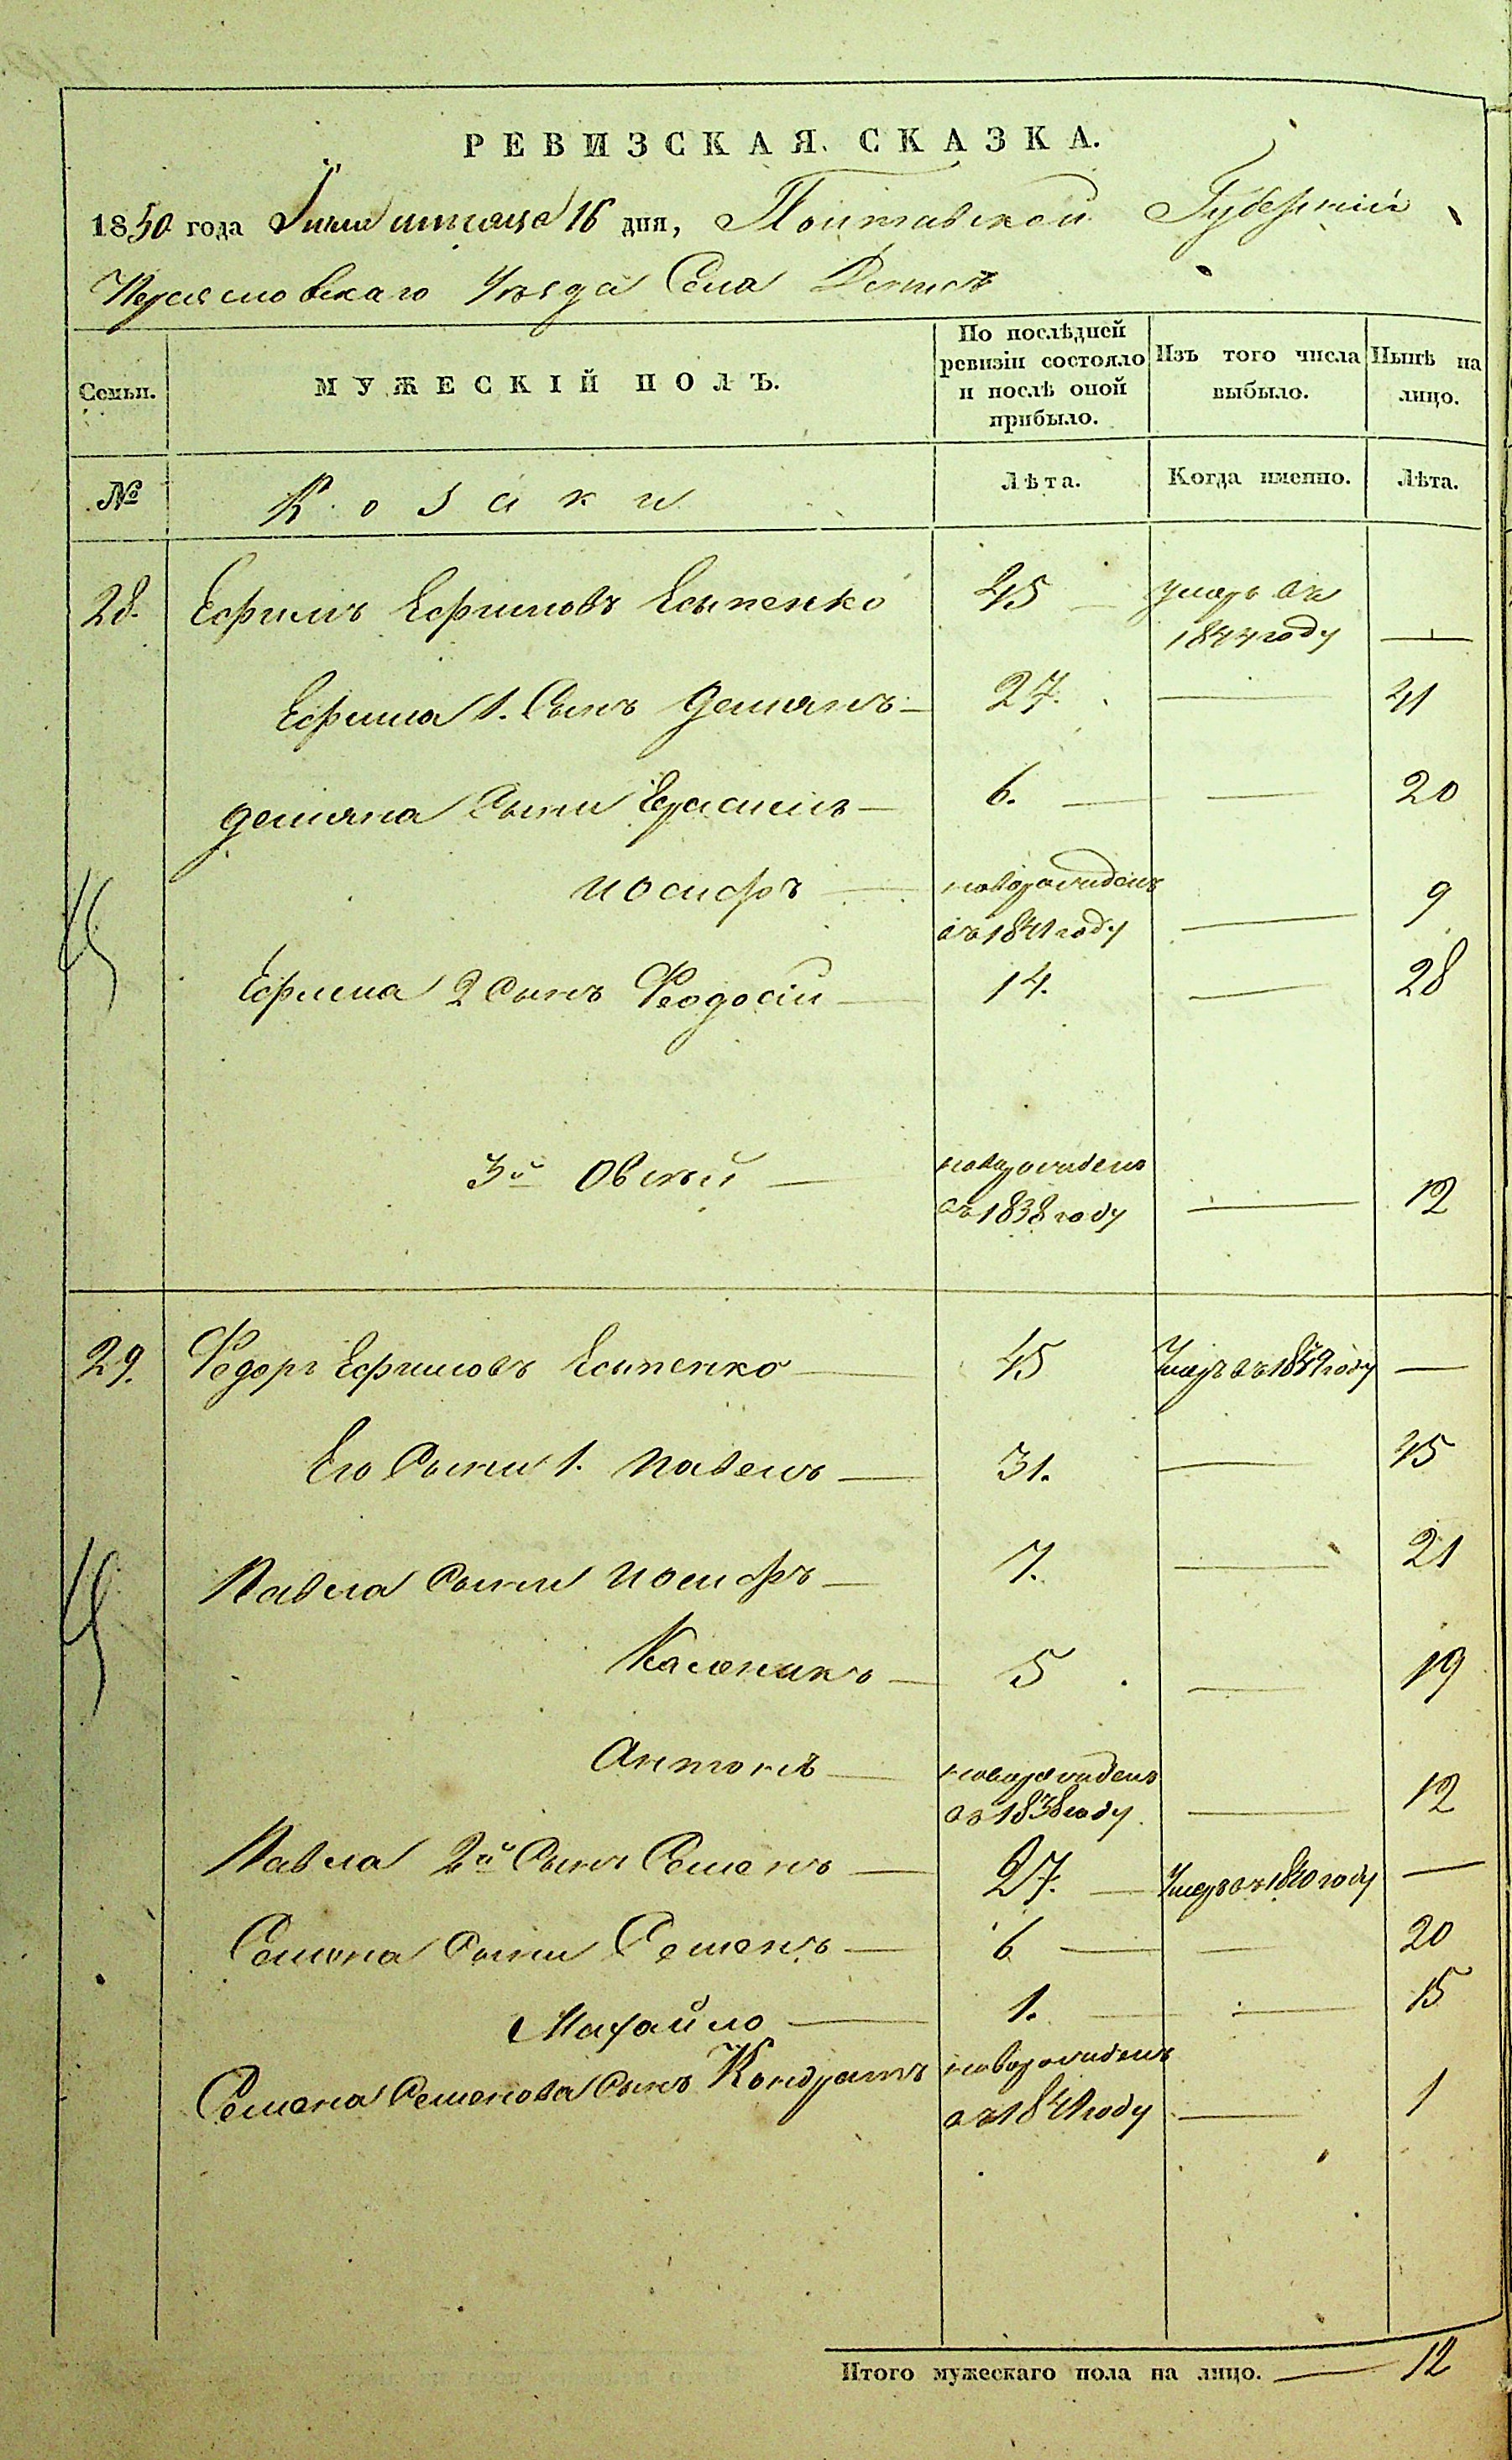 РЕВИЗСКАЯ СКАЗКА.
1850 года мѣсяца 16 дня, Полтавской Губерніи
Переясловскаго Уѣзда Села
Семьи.
МУЖЕСКІЙ ПОЛЪ.
По послѣдней ревизіи состояло и послѣ оной прибыло.
Изъ того числа выбыло.
Нынѣ на лицо.
№
Козаки
Лѣта.
Когда именно.
Лѣта.
28. Ефимъ Ефимовъ Есипенко 45 умеръ въ
1844 году —
Ефима 1. Сынъ Демянъ — 27. — 41
Демяна Сыни Герасимъ — 6. — — 20
Иосифъ — новорожденъ
въ 1841 году — 9
Ефима 2 Сынъ Феодосій — 14. — 28
3й Овсѣй — новорожденъ
въ 1838 году — 12
29. Федоръ Ефимовъ Есипенко — 45 Умеръ въ 1849 году —
Его Сыни 1. Павелъ — 31. — 45
Павла Сыни Иосифъ — 7. — 21
Каленикъ — 5 — 19
Антонъ — новорожденъ
въ 1838 году — 12
Павла 2й Сынъ Семенъ — 27. — Умеръ въ 1840 году —
Семена Сыни Семенъ — 6 — — 20
Михайло — 1. — — 15
Семена Семенова Сынъ Кондратъ новорожденъ
въ 1849 году — 1
Итого мужескаго пола на лицо. — 12